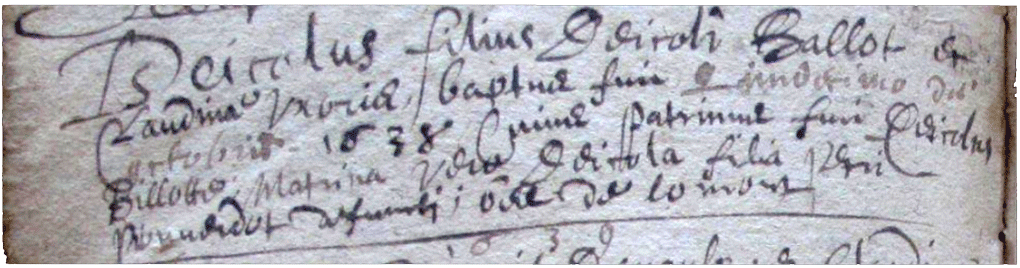 Deicolus filius Deicoli Ballot et
Claudinae uxoris, baptus fuit quindecimo die
octobris 1638 Cuius patrinus fuit Deicolus
Billotte, Matrina vero Deicola filia Petri
defuncti, oes de lomont
1639